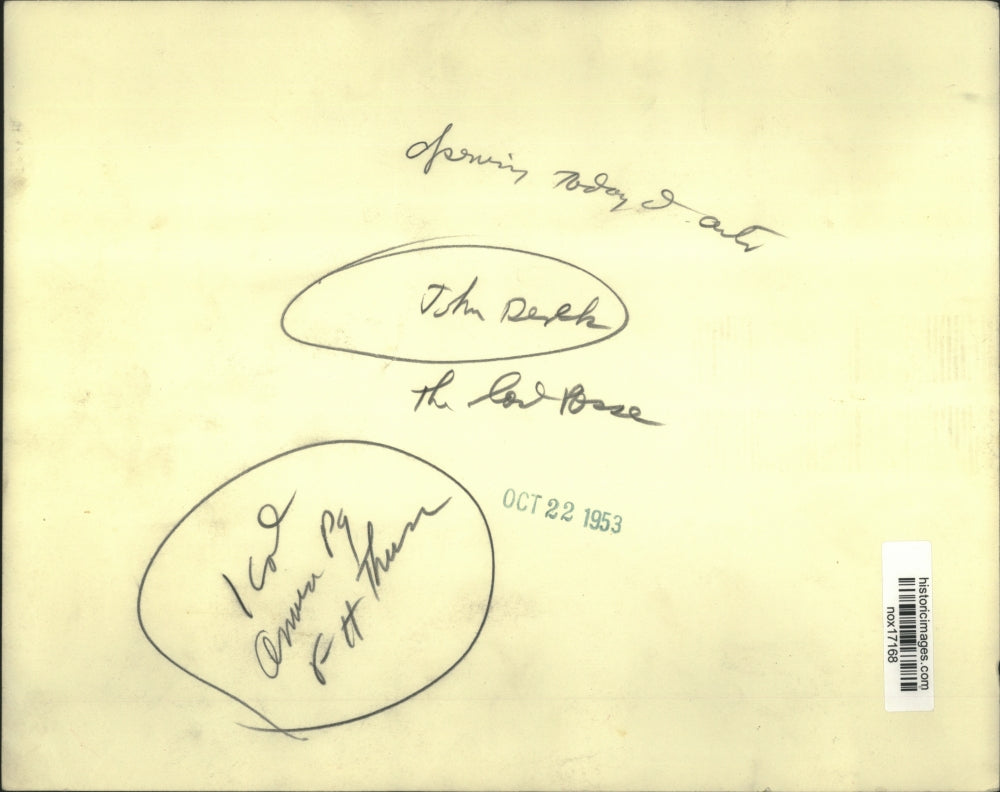 Opening Today
John Derek
The Last Posse
OCT 22 1953
1 Col
Pg
F H Thurs
historicimages.com
nox17168